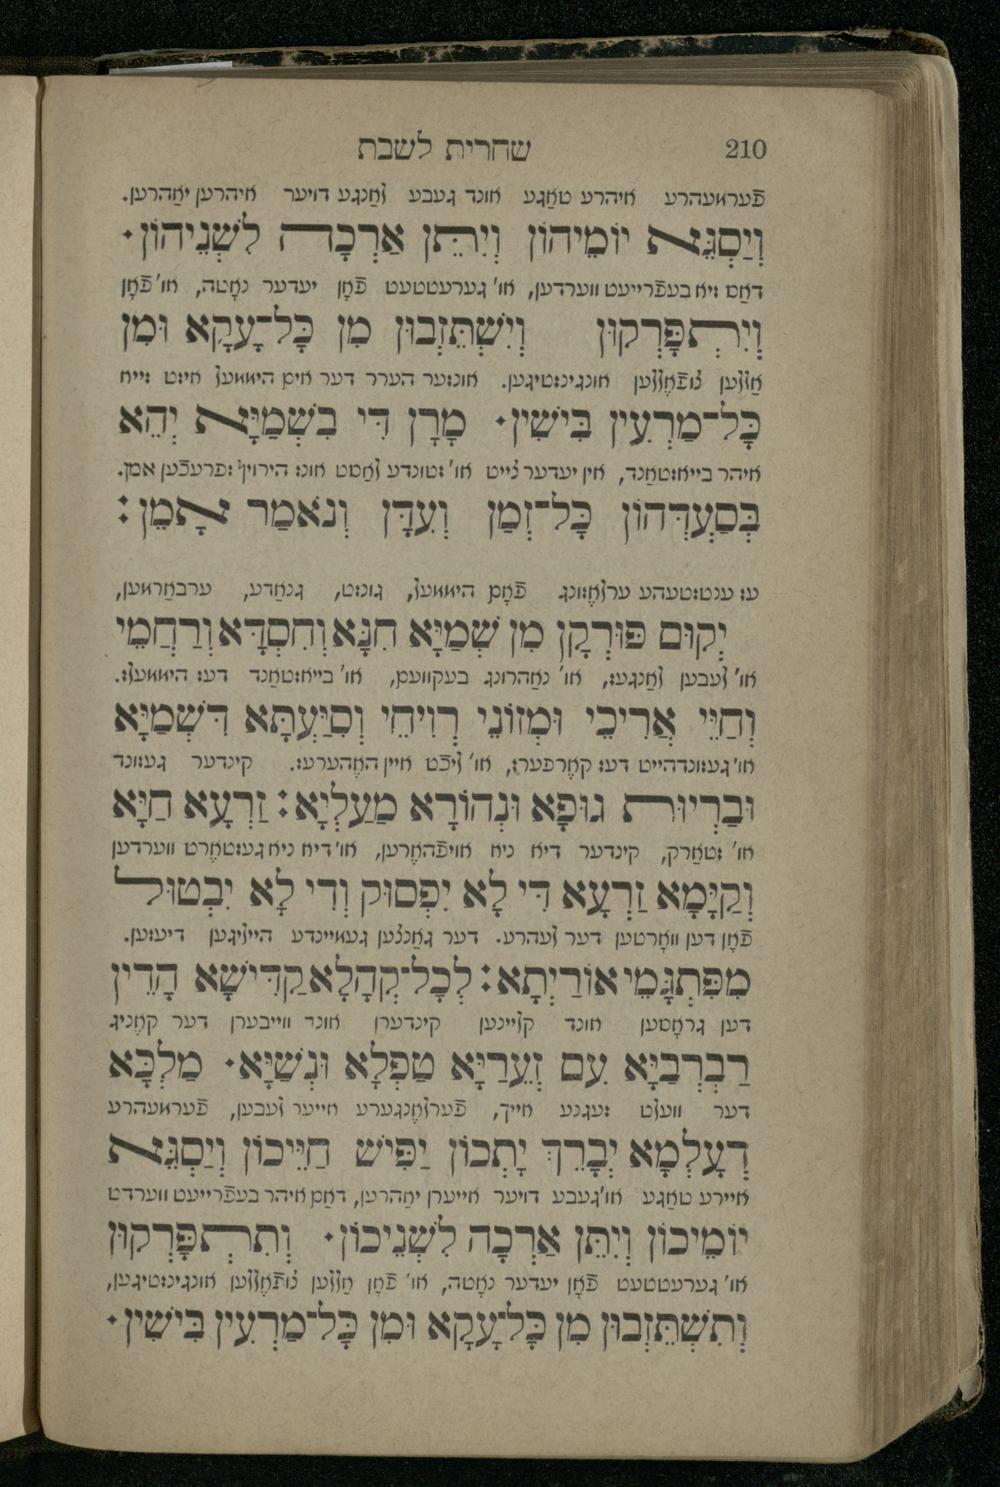 210 שחרית לשבת
פֿערמעהרע איהרע טאַגע אונד געבע לאַנגע דויער איהרען יאַהרען.
וְיַסְגֵּא יוֹמֵיהוֹן וְיִתֵּן אַרְכָה לִשְׁנֵיהוֹן·
דאַס זיא בעפֿרייעט ווערדען, או' גערעטטעט פֿאָן יעדער נאָטה, או' פֿאָן
וְיִרְתְפָּרְקוּן וְיִשְׁתֵּזְבוּן מִן כָּל־עָקָא וּמִן
אַללען צופֿאֶללען אונגינסטיגען. אונזער הערר דער אים היממעל איסט זייא
כָּל־מַרְעִין בִּישִׁין· מָרָן דִּי בִשְׁמַיָּא יְהֵא
איהר בייאשטאַנד, אין יעדער צייט או' שטונדע לאַסט אונס הירויף שפרעכֿען אמן.
בְּסַעְדְּהוֹן כָּל־זְמַן וְעִדָּן וְנֹאמַר אָמֵן:
עס ענטשטעהע ערלאֶזונג פֿאָם היממעל, גונסט, גנאַדע, ערבאַרמען,
יְקוּם פּוּרְקָן מִן שְׁמַיָּא חִנָּא וְחִסְדָּא וְרַחֲמֵי
או' לעבען לאַנגעס, או' נאַהרונג בעקוועם, או' בייאשטאַנד דעס היממעלס.
וְחַיֵּי אֲרִיכֵי וּמְזוֹנֵי רְוִיחֵי וְסִיַּעְתָּא דִשְׁמַיָּא
או' געזונדהייט דעס קאֶרפערס, או' ליכֿט איין האֶהערעס. קינדער געזונד
וּבַרְיוּת גּוּפָא וּנְהוֹרָא מַעַלְיָא: זַרְעָא חַיָּא
או' שטאַרק, קינדער דיא ניא אויפֿהאֶרען, או' דיא ניא געשטאֶרט ווערדען
וְקַיָּמָא זַרְעָא דִּי לָא יִפְסוּק וְדִי לָא יִבְטוּל
פֿאָן דען וואָרטען דער לעהרע. דער גאַנצען געמיינדע הייליגען דיעזען.
מִפִּתְגָּמֵי אוֹרַיְתָא: לְכָל־קְהָלָא קַדִּישָׁא הָדֵין
דען גראָסען אונד קליינען קינדערן אונד ווייבערן דער קאֶניג
רַבְרְבַיָּא עִם זְעֵרַיָּא טַפְלָא וּנְשַׁיָּא· מַלְכָּא
דער וועלט זעגנע אייך, פֿערלאֶנגערע אייער לעבען, פֿערמעהרע
דְעָלְמָא יְבָרֵךְ יָתְכוֹן יַפִּישׁ חַיֵּיכוֹן וְיַסְגֵּא
אייירע טאַגע או' געבע דויער אייערן יאַהרען, דאַס איהר בעפֿרייעט ווערדט
יוֹמֵיכוֹן וְיִתֵּן אַרְכָה לִשְׁנֵיכוֹן· וְתִרְתְפָּרְקוּן
או' גערעטטעט פֿאָן יעדער נאָטה, או' פֿאָן אַללען צופֿאֶללען אונגינסטיגען,
וְתִשְׁתֵּזְבוּן מִן כָּל־עָקָא וּמִן כָּל־מַרְעִין בִּישִׁין·